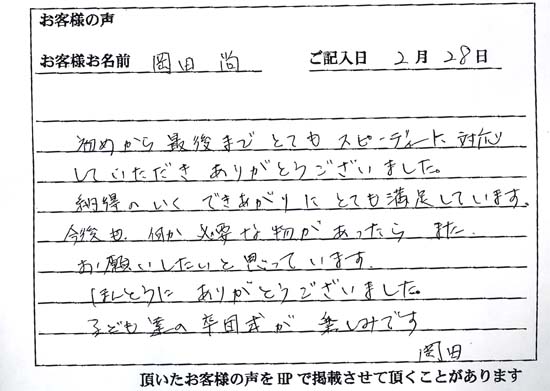 お客様の声
お客様お名前 岡田 尚 ご記入日 2月 28日
初めから 最後まで とても スピーディーに 対応
して いただき ありがとうございました。
納得の いく できあがり に とても 満足しています。
今後も 何か 必要な物が あったら また
お願いしたいと思って います。
ほんとうに ありがとうございました。
子ども達の 卒団式が 楽しみです
岡田
頂いたお客様の声をHPで掲載させて頂くことがあります